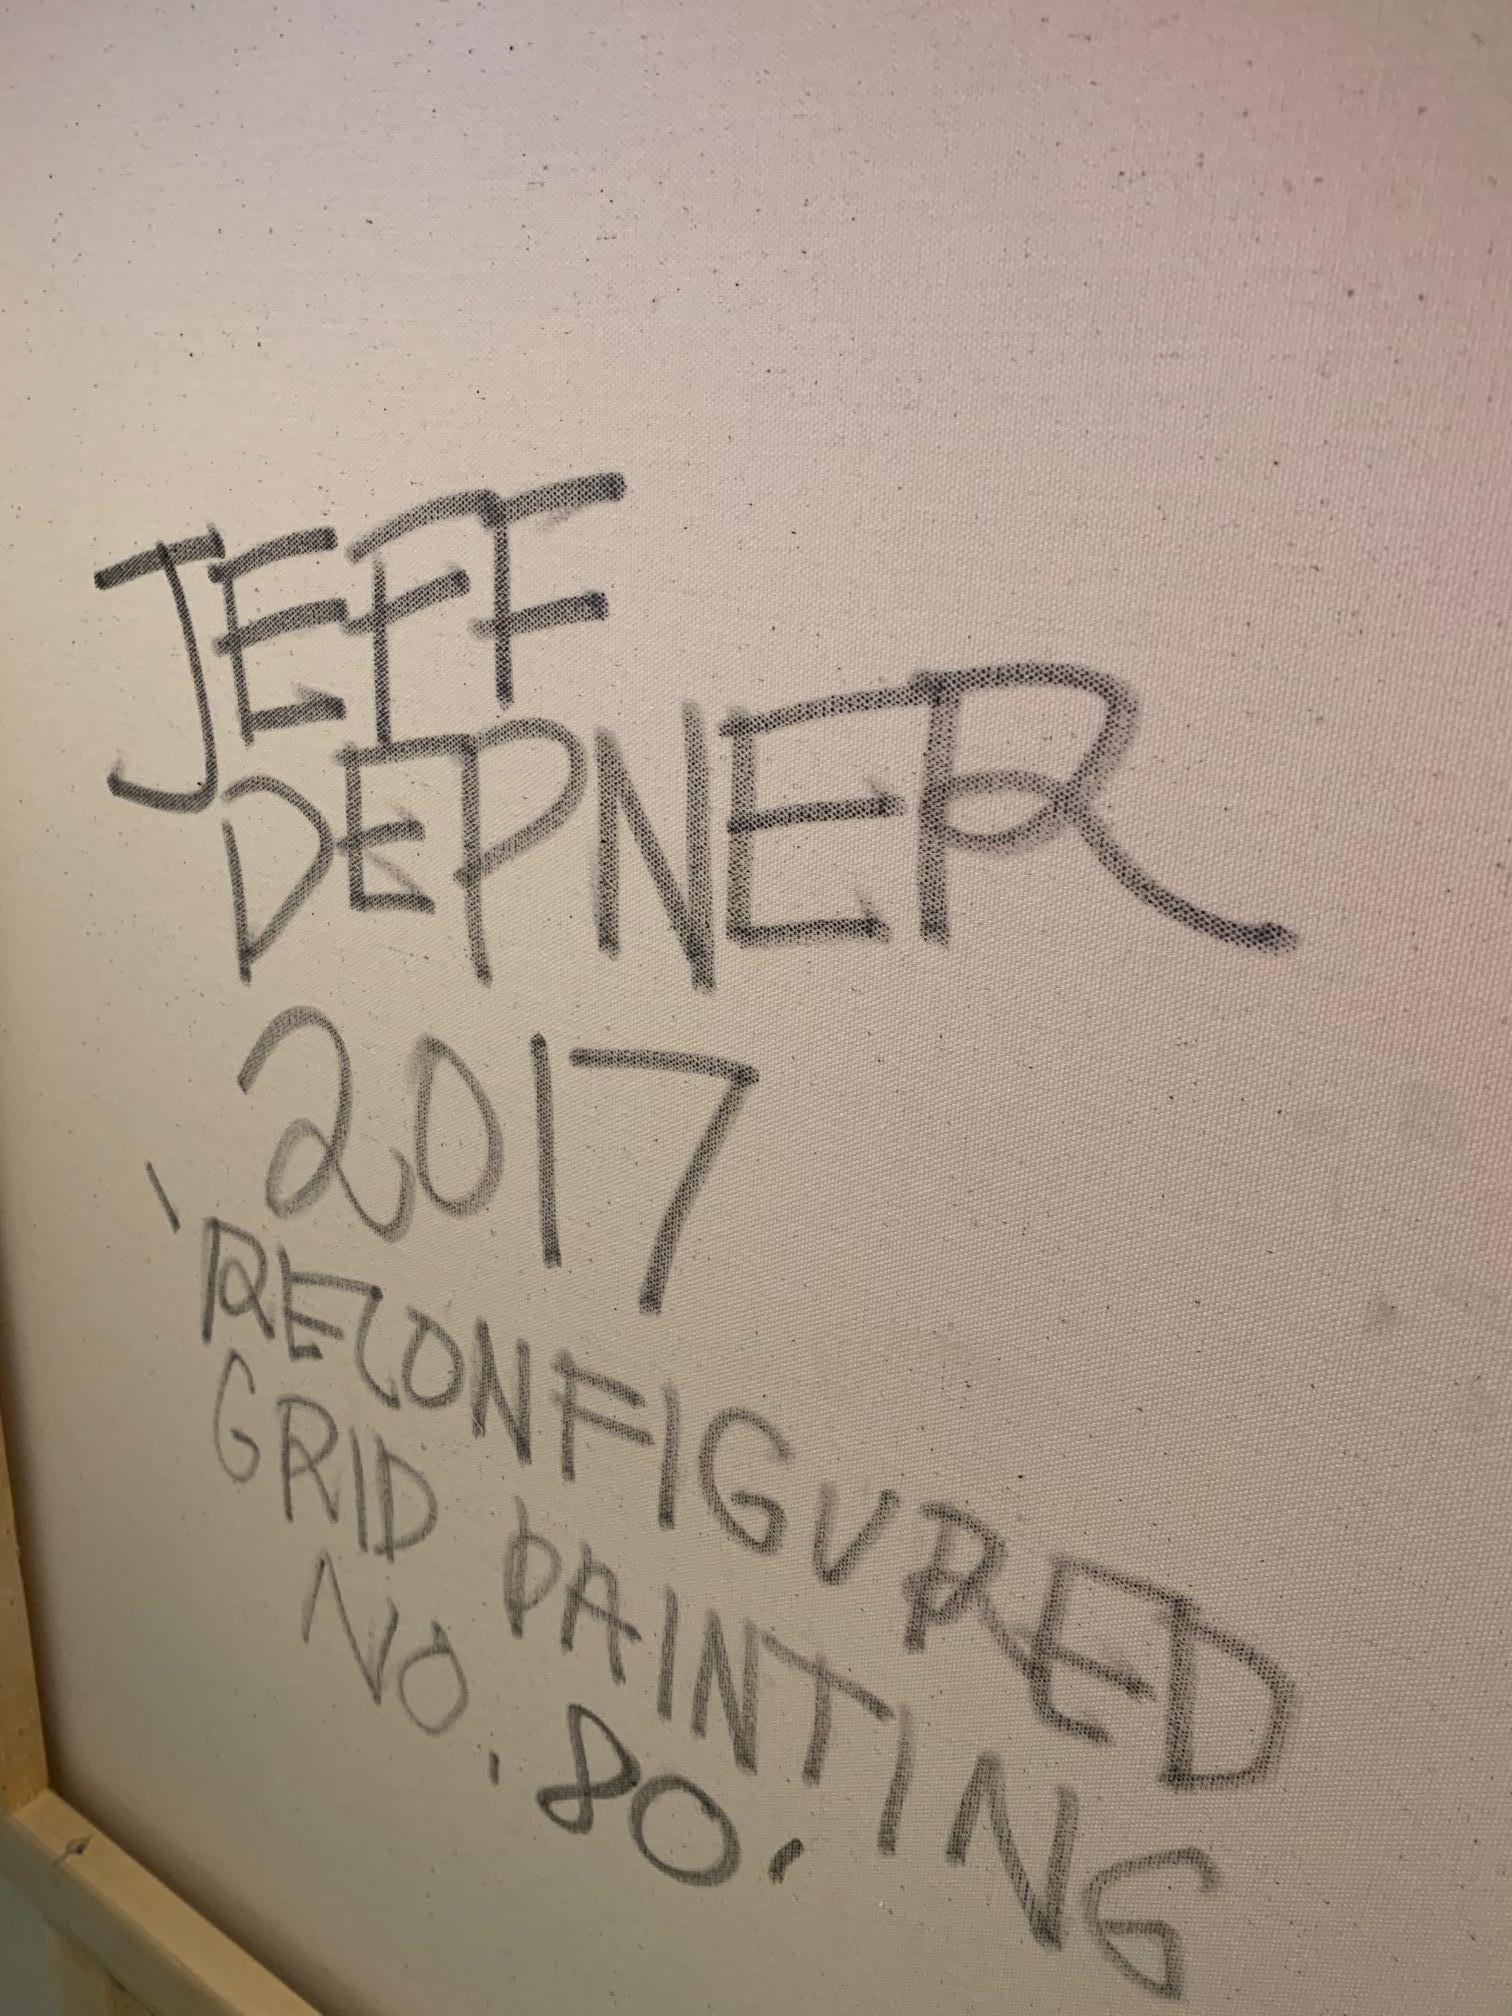 JEFF
DEPNER
2017
'RECONFIGURED
GRID PAINTING
NO. 80.'